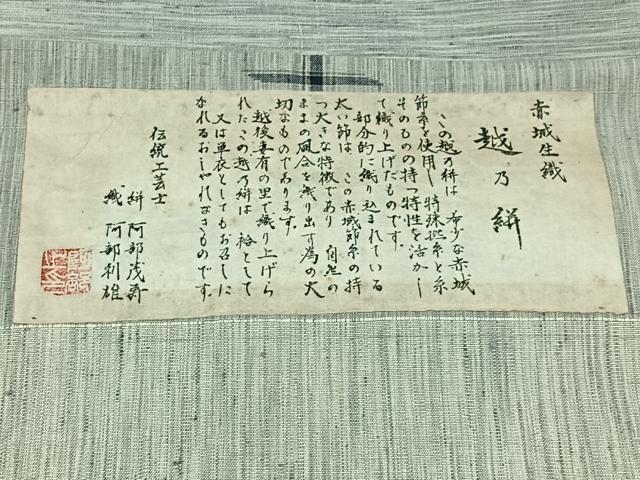 赤城生織
越乃絣
この越乃絣は 希少な赤城
節糸を使用し 特殊撚糸と糸
そのものの持つ特性を活かし
て織り上げたものです。
部分的に織り込まれている
太い節は、この赤城節糸の持
つ大きな特徴であり 自然の
ままの風合を織り出す為の大
切なものであります。
越後妻有の里で織り上げら
れたこの越乃絣は 袷として
又は単衣としてもお召しに
なれるおしゃれなきものです。
伝統工芸士
絣 阿部茂壽
織 阿部利雄